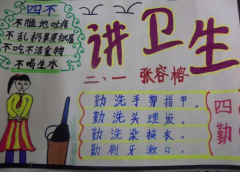 四不
不随地吐痰
不乱扔果皮纸屑
不吃不洁食物
不喝生水
讲卫生
二、一 张容榕
勤洗手剪指甲。
勤洗头理发。
勤洗澡换衣。
勤刷牙漱口。
四勤